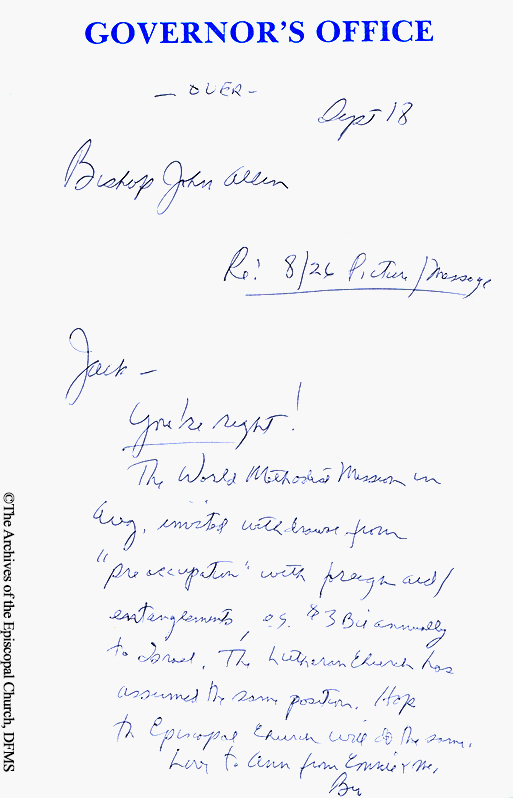 GOVERNOR'S OFFICE
— OVER —
Sept 18
Bishop John Allin
Re: 8/26 Picture/Message
Jack —
You're right!
The World Methodist Mission in
Aug. invited withdrawe from
"preoccupation" with foreign aid/
entanglements, e.g. $3 Bil annually
to Israel. The Lutheran Church has
assumed the same position. Hope
the Episcopal Church will do the same.
Love to Ann from Connie & me,
©The Archives of the Episcopal Church, DFMS